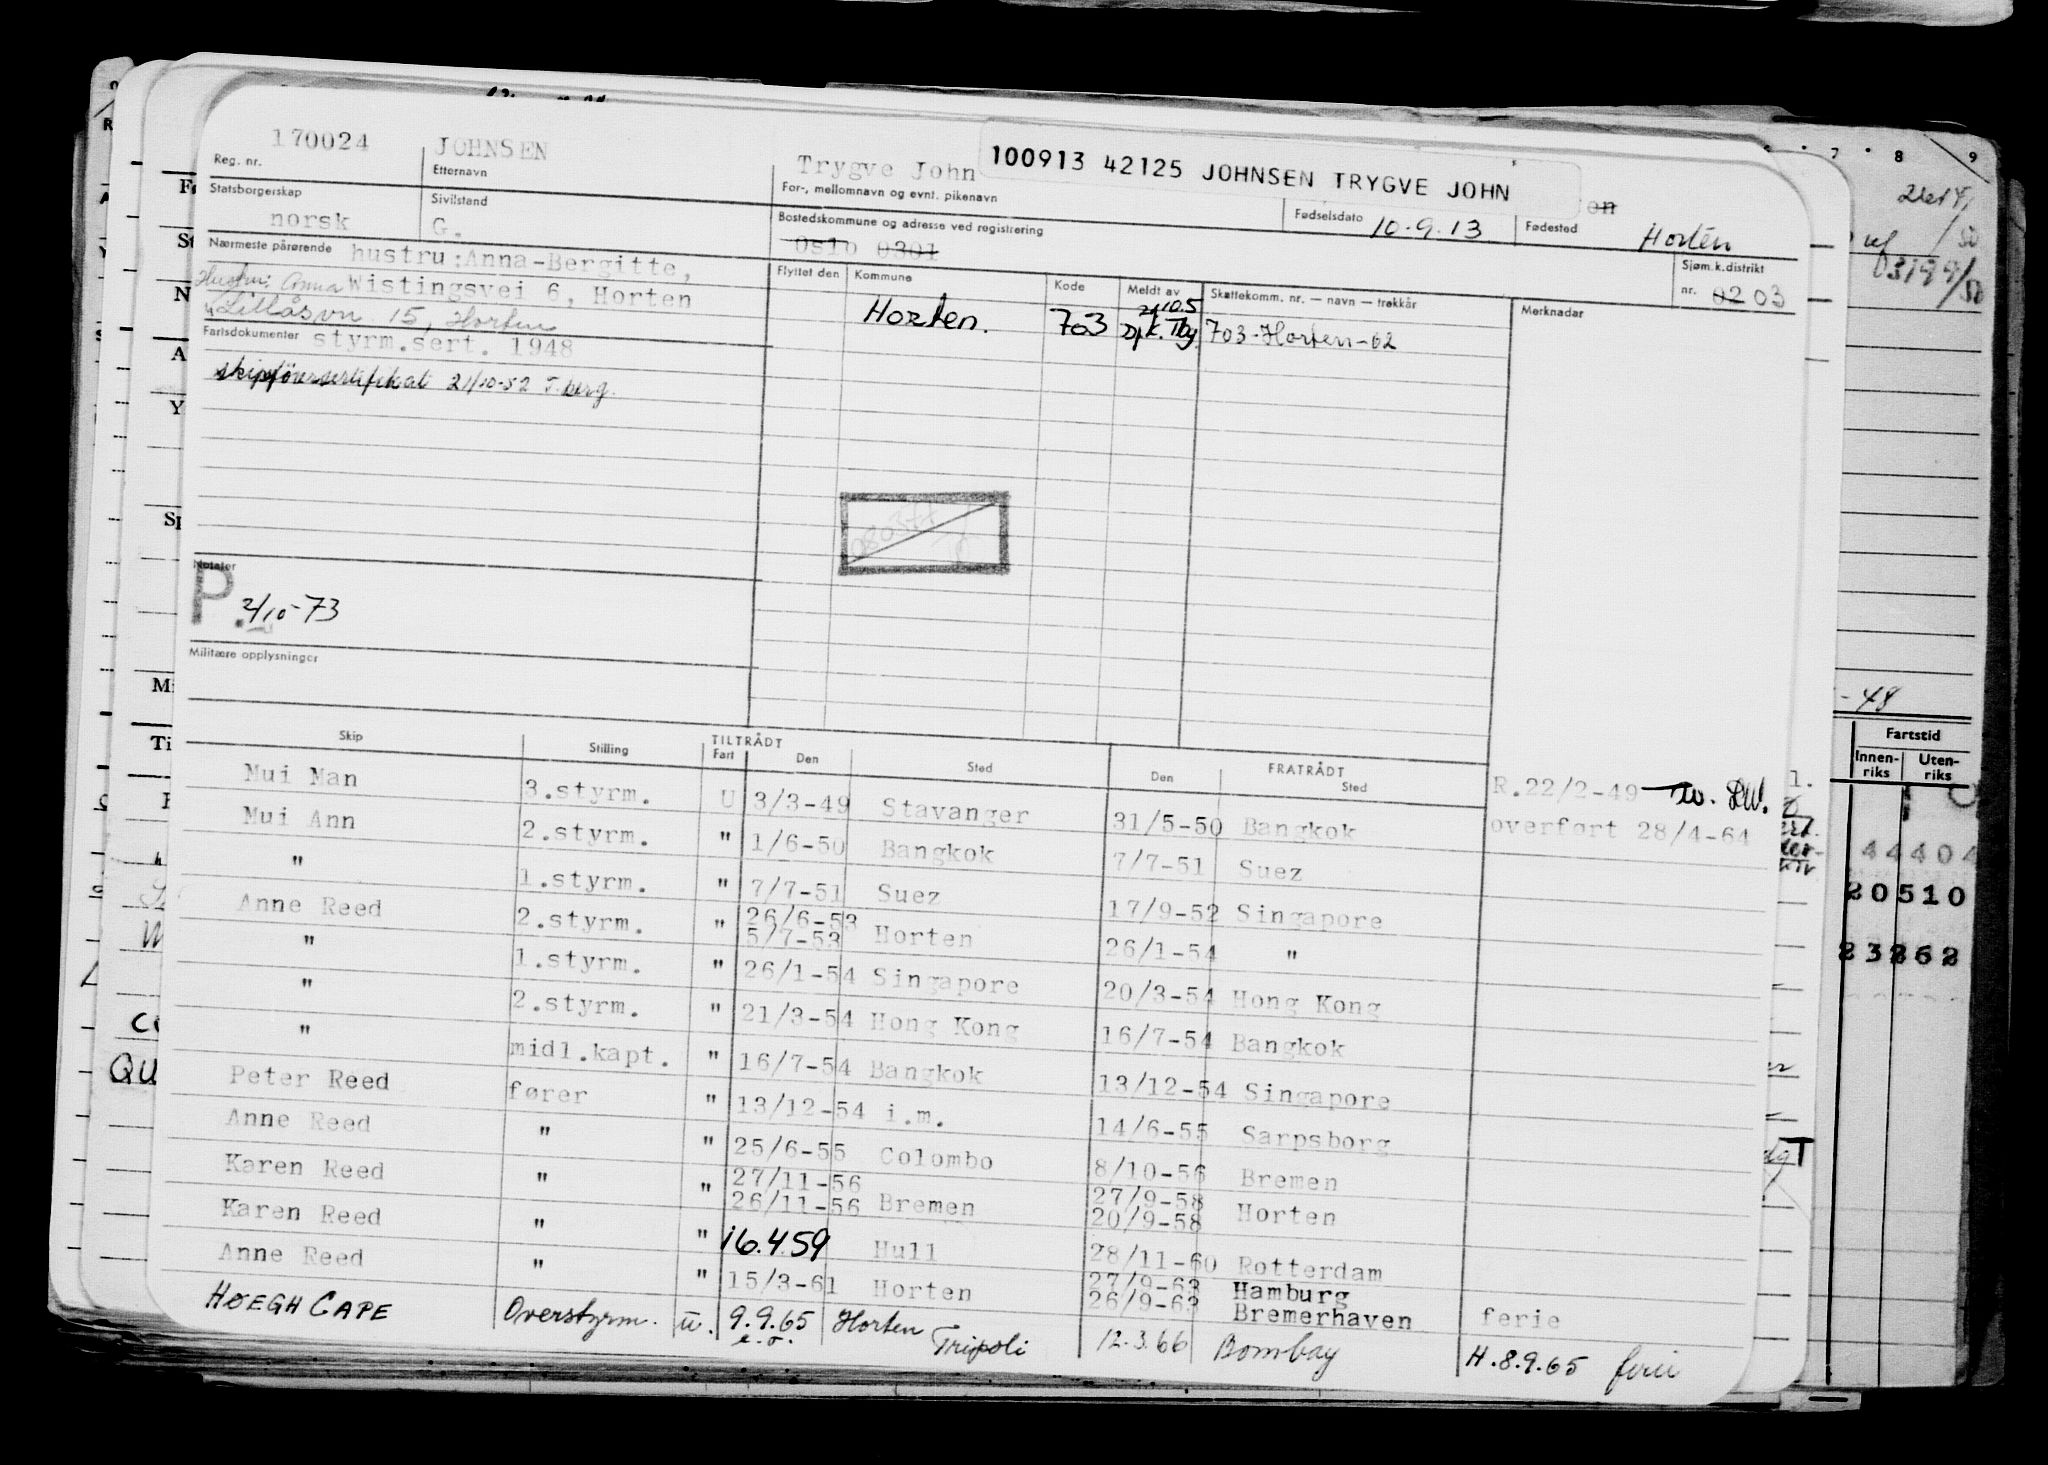 170024 JOHNSEN Trygve John 100913 42125 JOHNSEN TRYGVE JOHN
Reg. nr. Etternavn For-, mellomnavn og evnt. pikenavn on
Statsborgerskap Sivilstand Bostedskommune og adresse ved registrering Fødselsdato 10.9.13 Fødested Horten
norsk G. Oslo 0301
Nærmeste pårørende hustru:Anna-Bergitte, Flyttet den Kommune Kode Meldt av Skattekomm. nr. — navn — trekkår Sjøm.k.distrikt nr. 02 03
Hustru: Anna Wistingsvei 6, Horten Merknader
Lillåsvn 15, Horten Horten. 703 703-Horten-62
Fartsdokumenter styrm.sert. 1948
skipsførersertifikat 21/10-52 T.berg.
Notater
P. 2/10-73
Militære opplysninger
Skip Stilling TILTRÅDT Fart Den Sted FRATRÅDT Den Sted
Mui Man 3.styrm. U 3/3-49 Stavanger 31/5-50 Bangkok R.22/2-49
Mui Ann 2.styrm. " 1/6-50 Bangkok 7/7-51 Suez overført 28/4-64
" 1.styrm. " 7/7-51 Suez 17/9-52 Singapore
Anne Reed 2.styrm. " 26/6-53 5/7-53 Horten 26/1-54 "
" 1.styrm. " 26/1-54 Singapore 20/3-54 Hong Kong
" 2.styrm. " 21/3-54 Hong Kong 16/7-54 Bangkok
" midl.kapt. " 16/7-54 Bangkok 13/12-54 Singapore
Peter Reed fører " 13/12-54 i.m. 14/6-55 Sarpsborg
Anne Reed " " 25/6-55 Colombo 8/10-56 Bremen
Karen Reed " " 27/11-56 26/11-56 Bremen 27/9-58 20/9-58 Horten
Karen Reed " " 16.4.59 Hull 28/11-60 Rotterdam
Anne Reed " " 15/3-61 Horten 27/9-63 26/9-63 Hamburg Bremerhaven ferie
HØEGH CAPE Overstyrm. u. 9.9.65 e.o. Horten Tripoli 12.3.66 Bombay H.8.9.65 ferie
7 8 9
-48
Fartstid
Innenriks Utenriks
44404
20510
23262